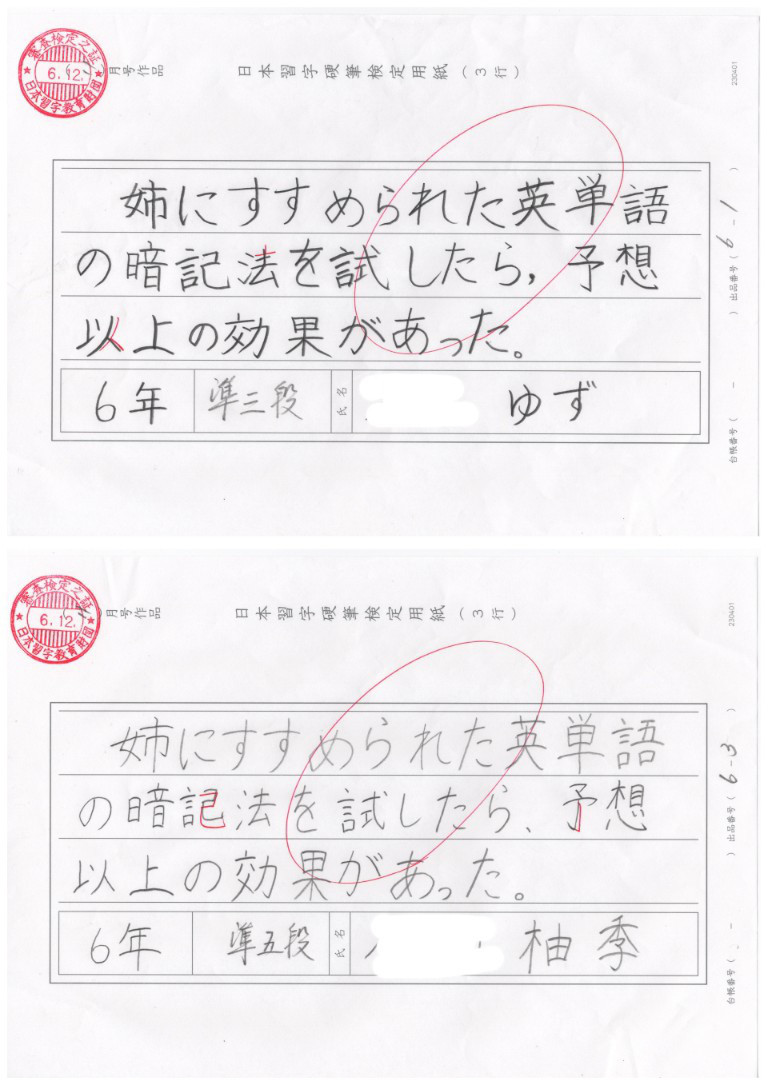 審査検定之証
6.12.
日本習字教育財団
月号作品
日本習字硬筆検定用紙(3行)
230401
姉にすすめられた英単語
の暗記法を試したら,予想
以上の効果があった。
6年 準三段 氏名 ゆず
出品番号(6-1)
台帳番号( - )
審査検定之証
6.12.
日本習字教育財団
月号作品
日本習字硬筆検定用紙(3行)
230401
姉にすすめられた英単語
の暗記法を試したら、予想
以上の効果があった。
6年 準五段 氏名 柚季
出品番号(6-3)
台帳番号( - )